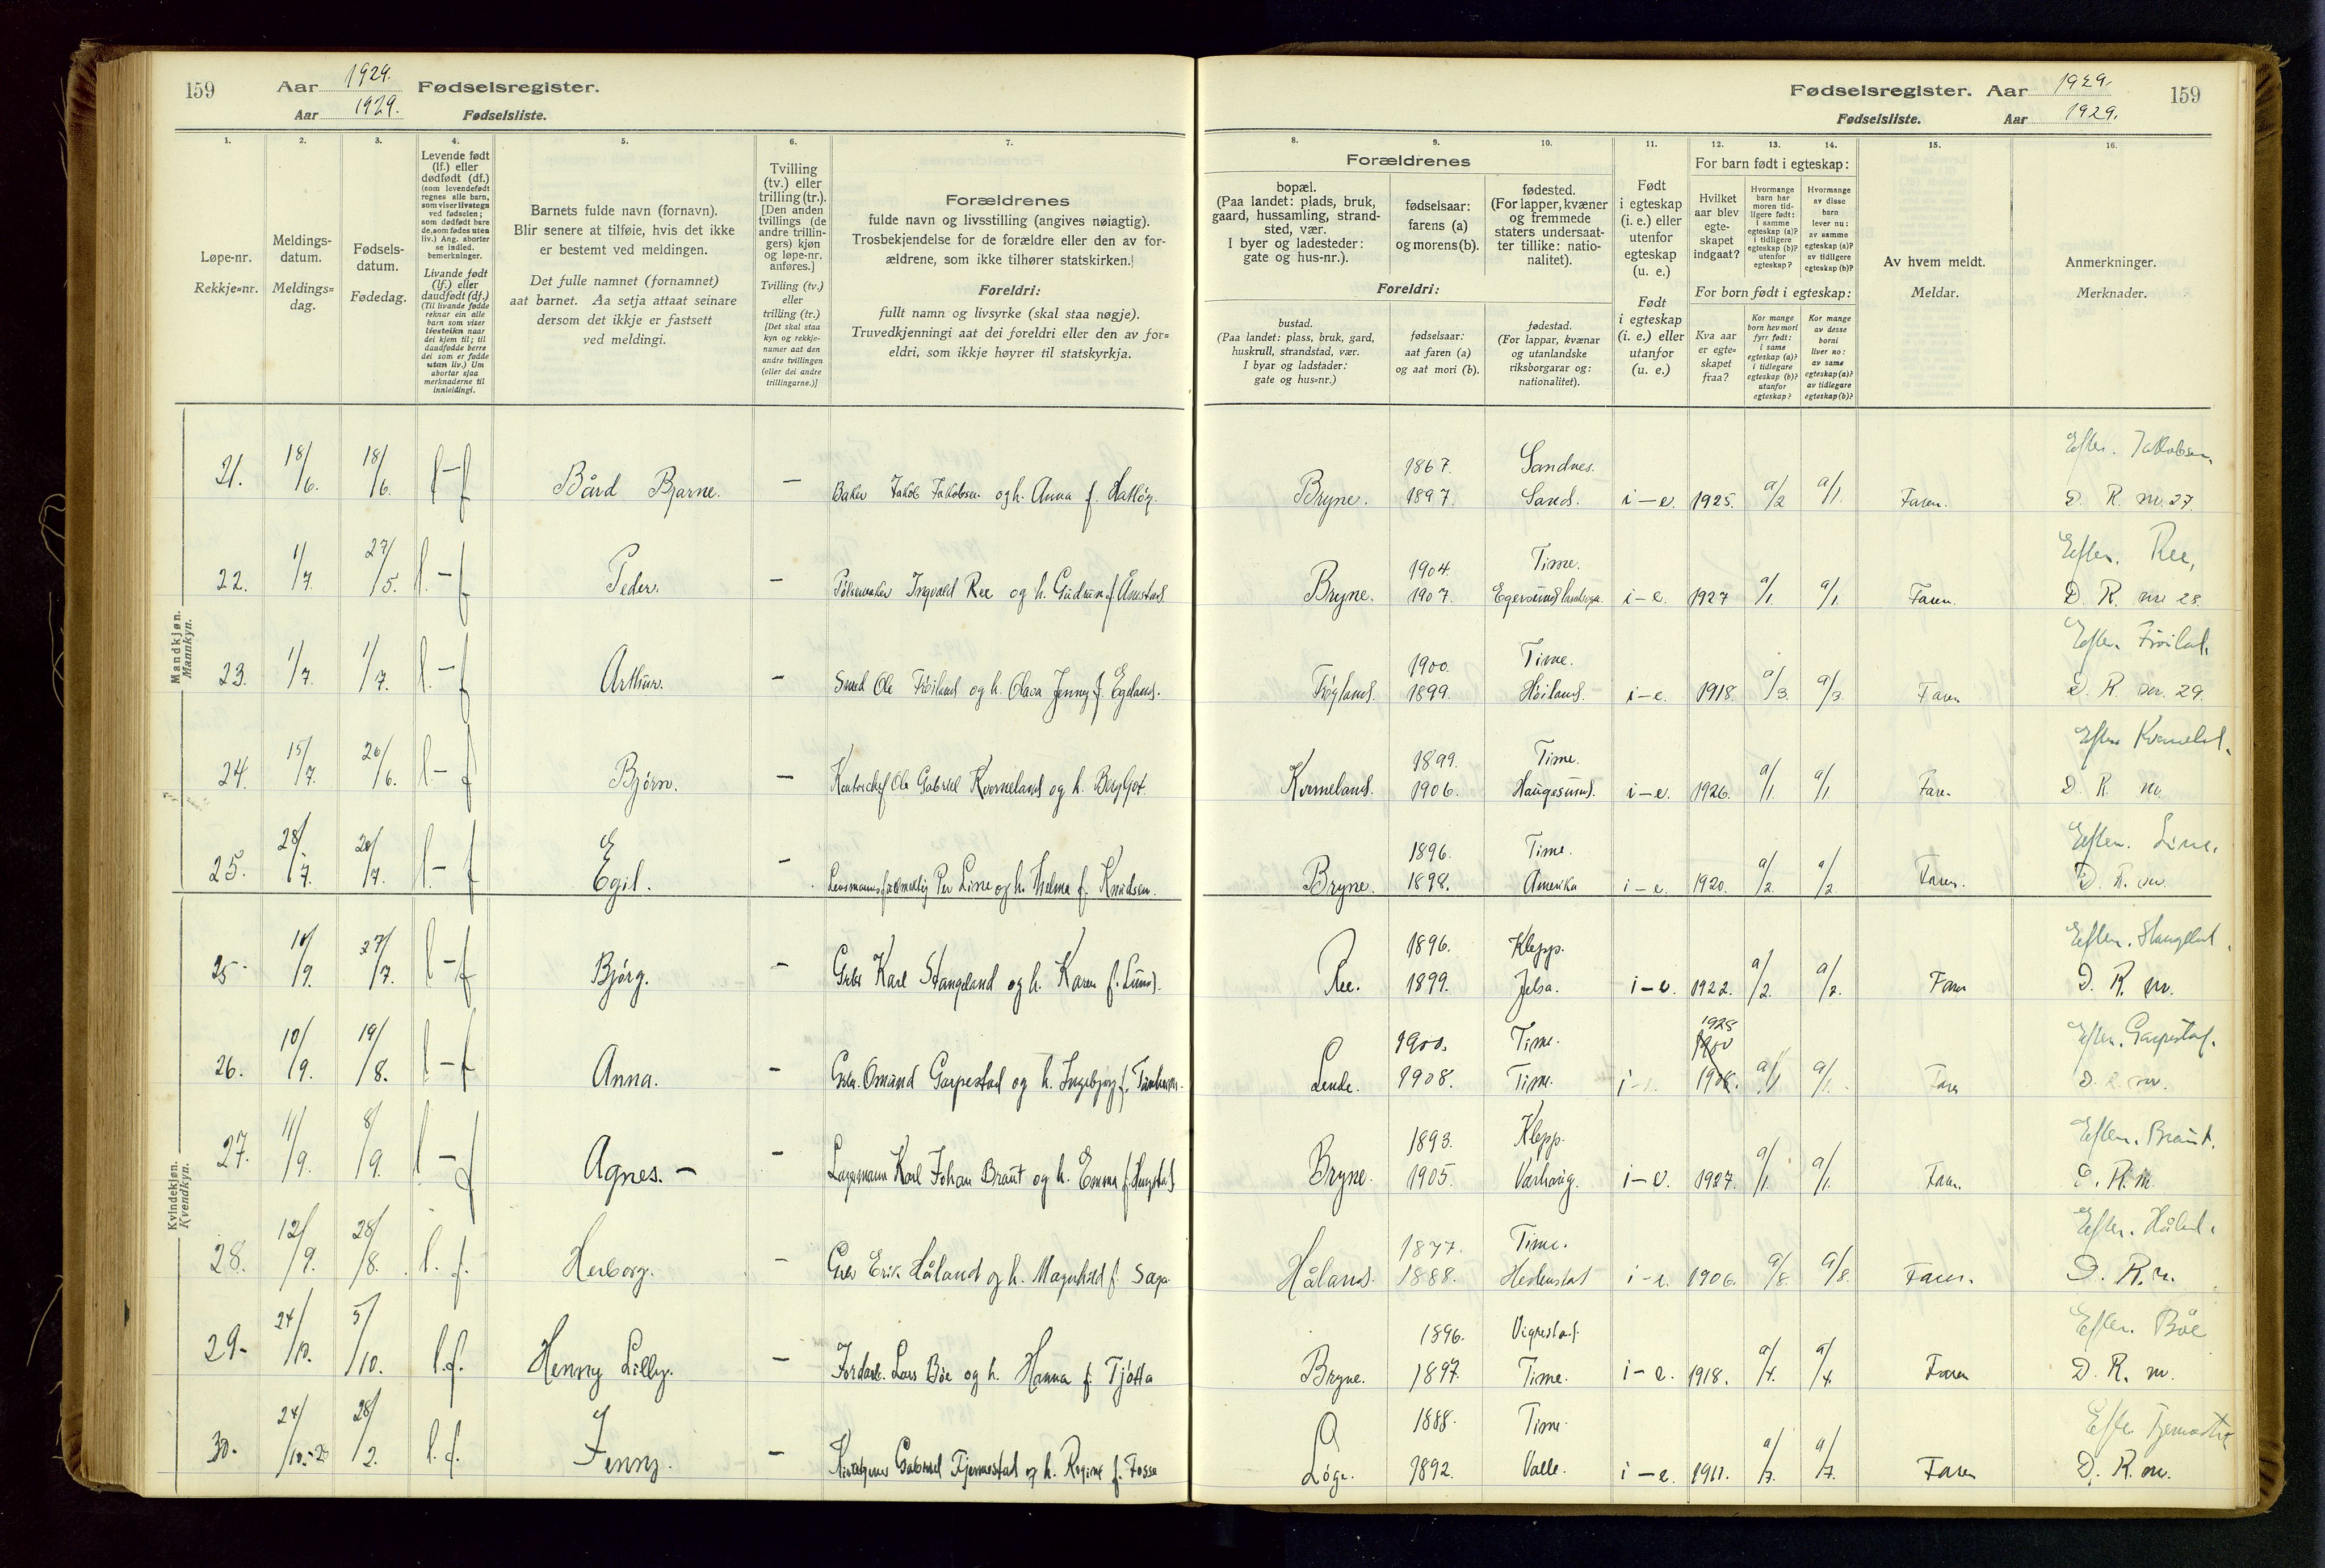 159 Aar 1929. Fødselsregister.
Aar 1929. Fødselsliste.
Fødselsregister. Aar 1929. 159
Fødselsliste. Aar 1929.
1. 2. 3. 4. 5. 6. 7.
Løpe-nr.
Rekkje=nr.
Meldings-
datum.
Meldings=
dag.
Fødsels-
datum.
Fødedag.
Levende født
(lf.) eller
dødfødt (df.)
(som levendefødt
regnes alle barn,
som viser livstegn
ved fødselen;
som dødfødt bare
de, som fødes uten
liv.) Ang. aborter
se indled.
bemerkninger.
Livande født
(lf.) eller
daudfødt (df.)
(Til livande fødde
reknar ein alle
born som viser
livsteikn naar
dei kjem til; til
daudfødde berre
dei som er fødde
utan liv.) Um
abortar sjaa
merknaderne til
innleidingi.
Barnets fulde navn (fornavn).
Blir senere at tilføie, hvis det ikke
er bestemt ved meldingen.
Det fulle namnet (fornamnet)
aat barnet. Aa setja attaat seinare
dersom det ikkje er fastsett
ved meldingi.
Tvilling
(tv.) eller
trilling (tr.).
[Den anden
tvillings (de
andre trillin-
gers) kjøn
og løpe-nr.
anføres.]
Tvilling (tv.)
eller
trilling (tr.)
[Det skal staa
kyn og rekkje-
numer aat den
andre tvillingen
(eller dei andre
trillingarne.)]
Forældrenes
fulde navn og livsstilling (angives nøiagtig).
Trosbekjendelse for de forældre eller den av for-
ældrene, som ikke tilhører statskirken.
Foreldri:
fullt namn og livsyrke (skal staa nøgje).
Truvedkjenningi aat dei foreldri eller den av for=
eldri, som ikkje høyrer til statskyrkja.
8. 9. 10. 11. 12. 13. 14. 15. 16.
Forældrenes
bopæl.
(Paa landet: plads, bruk,
gaard, hussamling, strand-
sted, vær.
I byer og ladesteder:
gate og hus-nr.).
fødselsaar:
farens (a)
og morens (b).
fødested.
(For lapper, kvæner
og fremmede
staters undersaat-
ter tillike: natio-
nalitet).
Foreldri:
bustad.
(Paa landet: plass, bruk, gard,
huskrull, strandstad, vær.
I byar og ladstader:
gate og hus=nr.)
fødselsaar:
aat faren (a)
og aat mori (b).
fødestad.
(For lappar, kvænar
og utanlandske
riksborgarar og:
nationalitet).
Født
i egteskap
(i. e.) eller
utenfor
egteskap
(u. e.)
Født
i egteskap
(i. e.) eller
utanfor
egteskap
(u. e.)
For barn født i egteskap:
Hvilket
aar blev
egte-
skapet
indgaat?
Hvormange
barn har
moren tid-
ligere født:
i samme
egteskap (a)?
i tidligere
egteskap (b)?
utenfor
egteskap?
Hvormange
av disse
barn
lever nu:
av samme
egteskap (a)?
av tidligere
egteskap (b)?
For born født i egteskap:
Kva aar
er egte=
skapet
fraa?
Kor mange
born hev mori
fyrr født:
i same
egteskap (a)?
i tidlegare
egteskap (b)?
utanfor
egteskap?
Kor mange
av desse
borni
liver no:
av same
egteskap (a)?
av tidlegare
egteskap (b)?
Av hvem meldt.
Meldar.
Anmerkninger.
Merknader.
Mandkjøn.
Mannkyn.
21. 18/6. 18/6. l-f Bård Bjarne. - Baker Jakob Jakobsen og h. Anna f. Bryne. 1867. 1897. Sandnes. Sand. i-e. 1925. a/2 a/1. Faren. Eftn. Jakobsen. D. R. nr. 27.
22. 1/7. 27/5. l-f Peder. - Pølsemaker Ingvald Ree og h. Gudrun f. Ånestad. Bryne. 1904. 1907. Time. Egersund landsogn. i-e. 1927 a/1. a/1. Faren. Eftn. Ree, D. R. nr 28.
23. 1/7. 1/7. l-f Arthur. - Smed Ole Frøiland og h. Olava Jenny f. Egeland. Frøyland. 1900. 1899. Time. Høiland. i-e. 1918. a/3. a/3. Faren Eftn. Frøiland. D. R. nr. 29.
24. 15/7. 20/6. l-f Bjørn. - Kontorchef Ole Gabriel Kverneland og h. Bergljot. Kverneland. 1899. 1906. Time. Haugesund. i-e. 1926. a/1. a/1. Faren Eftn Kverneland. D. R. nr.
25. 28/7. 20/7. l-f Egil. - Lensmannsfullmektig Per Line og h. Thelma f. Knudsen. Bryne. 1896. 1898. Time. Amerika i-e. 1920. a/2. a/2. Faren. Eftn. Line. D. R. nr.
Kvindekjøn.
Kvendkyn.
25. 10/9. 27/7. l-f Bjørg. - Gbr Karl Stangeland og h. Karen f. Lund. Ree. 1896. 1899. Klepp. Jelsa. i-e. 1922. a/2. a/2. Faren Eftn. Stangeland. D. R. nr.
26. 10/9. 19/8. l-f Anna. - Gbr. Osmund Garpestad og h. Ingebjørg f. Lende. 1900. 1908. Time. Time. i-e. 1928 a/1 a/1. Faren Eftn. Garpestad. D. R. nr.
27. 11/9. 8/9. l-f Agnes. - Karl Johan Braut og h. Emma f. Bryne. 1893. 1905. Klepp. Varhaug. i-e. 1927. a/1. a/1. Faren. Eftn. Braut. D. R. nr.
28. 12/9. 28/8. l.f. Herborg. - Gbr Erik Håland og h. Magnhild f. Saga Håland. 1877. 1888. Time. i-e. 1906. a/8. a/8. Faren. Eftn. Håland. D. R. nr.
29. 24/10. 5/10. l.f. Henny Lilly. - Jordarb. Lars Bøe og h. Hanna f. Tjøtta Bryne. 1896. 1897. Vigrestad. Time. i-e. 1918. a/4. a/4. Faren Eftn. Bøe D. R. nr.
30. 24/10.-29 28/2. l.f. Jenny. - Gabriel Tjemestad og h. Regine f. Fosse Løge. 1888. 1892. Time. Valle. i-e. 1911. a/7. a/7. Faren Eftn Tjemestad D. R. nr.